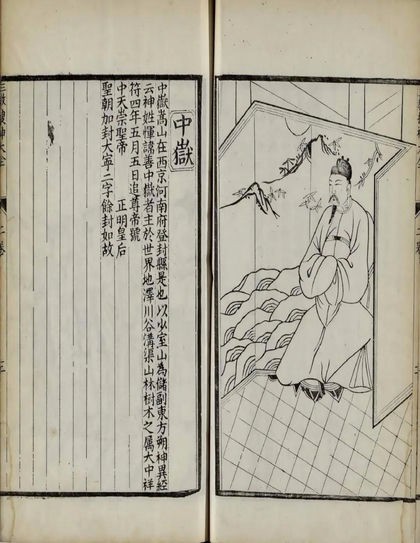 中嶽
中嶽嵩山在西京河南府登封縣是也以少室山為儲副東方朔神異經
云神姓惲諱善中嶽者主於世界地澤川谷溝渠山林樹木之屬大中祥
符四年五月五日追尊帝號
中天崇聖帝 正明皇后
聖朝加封大寧二字餘封如故
二卷